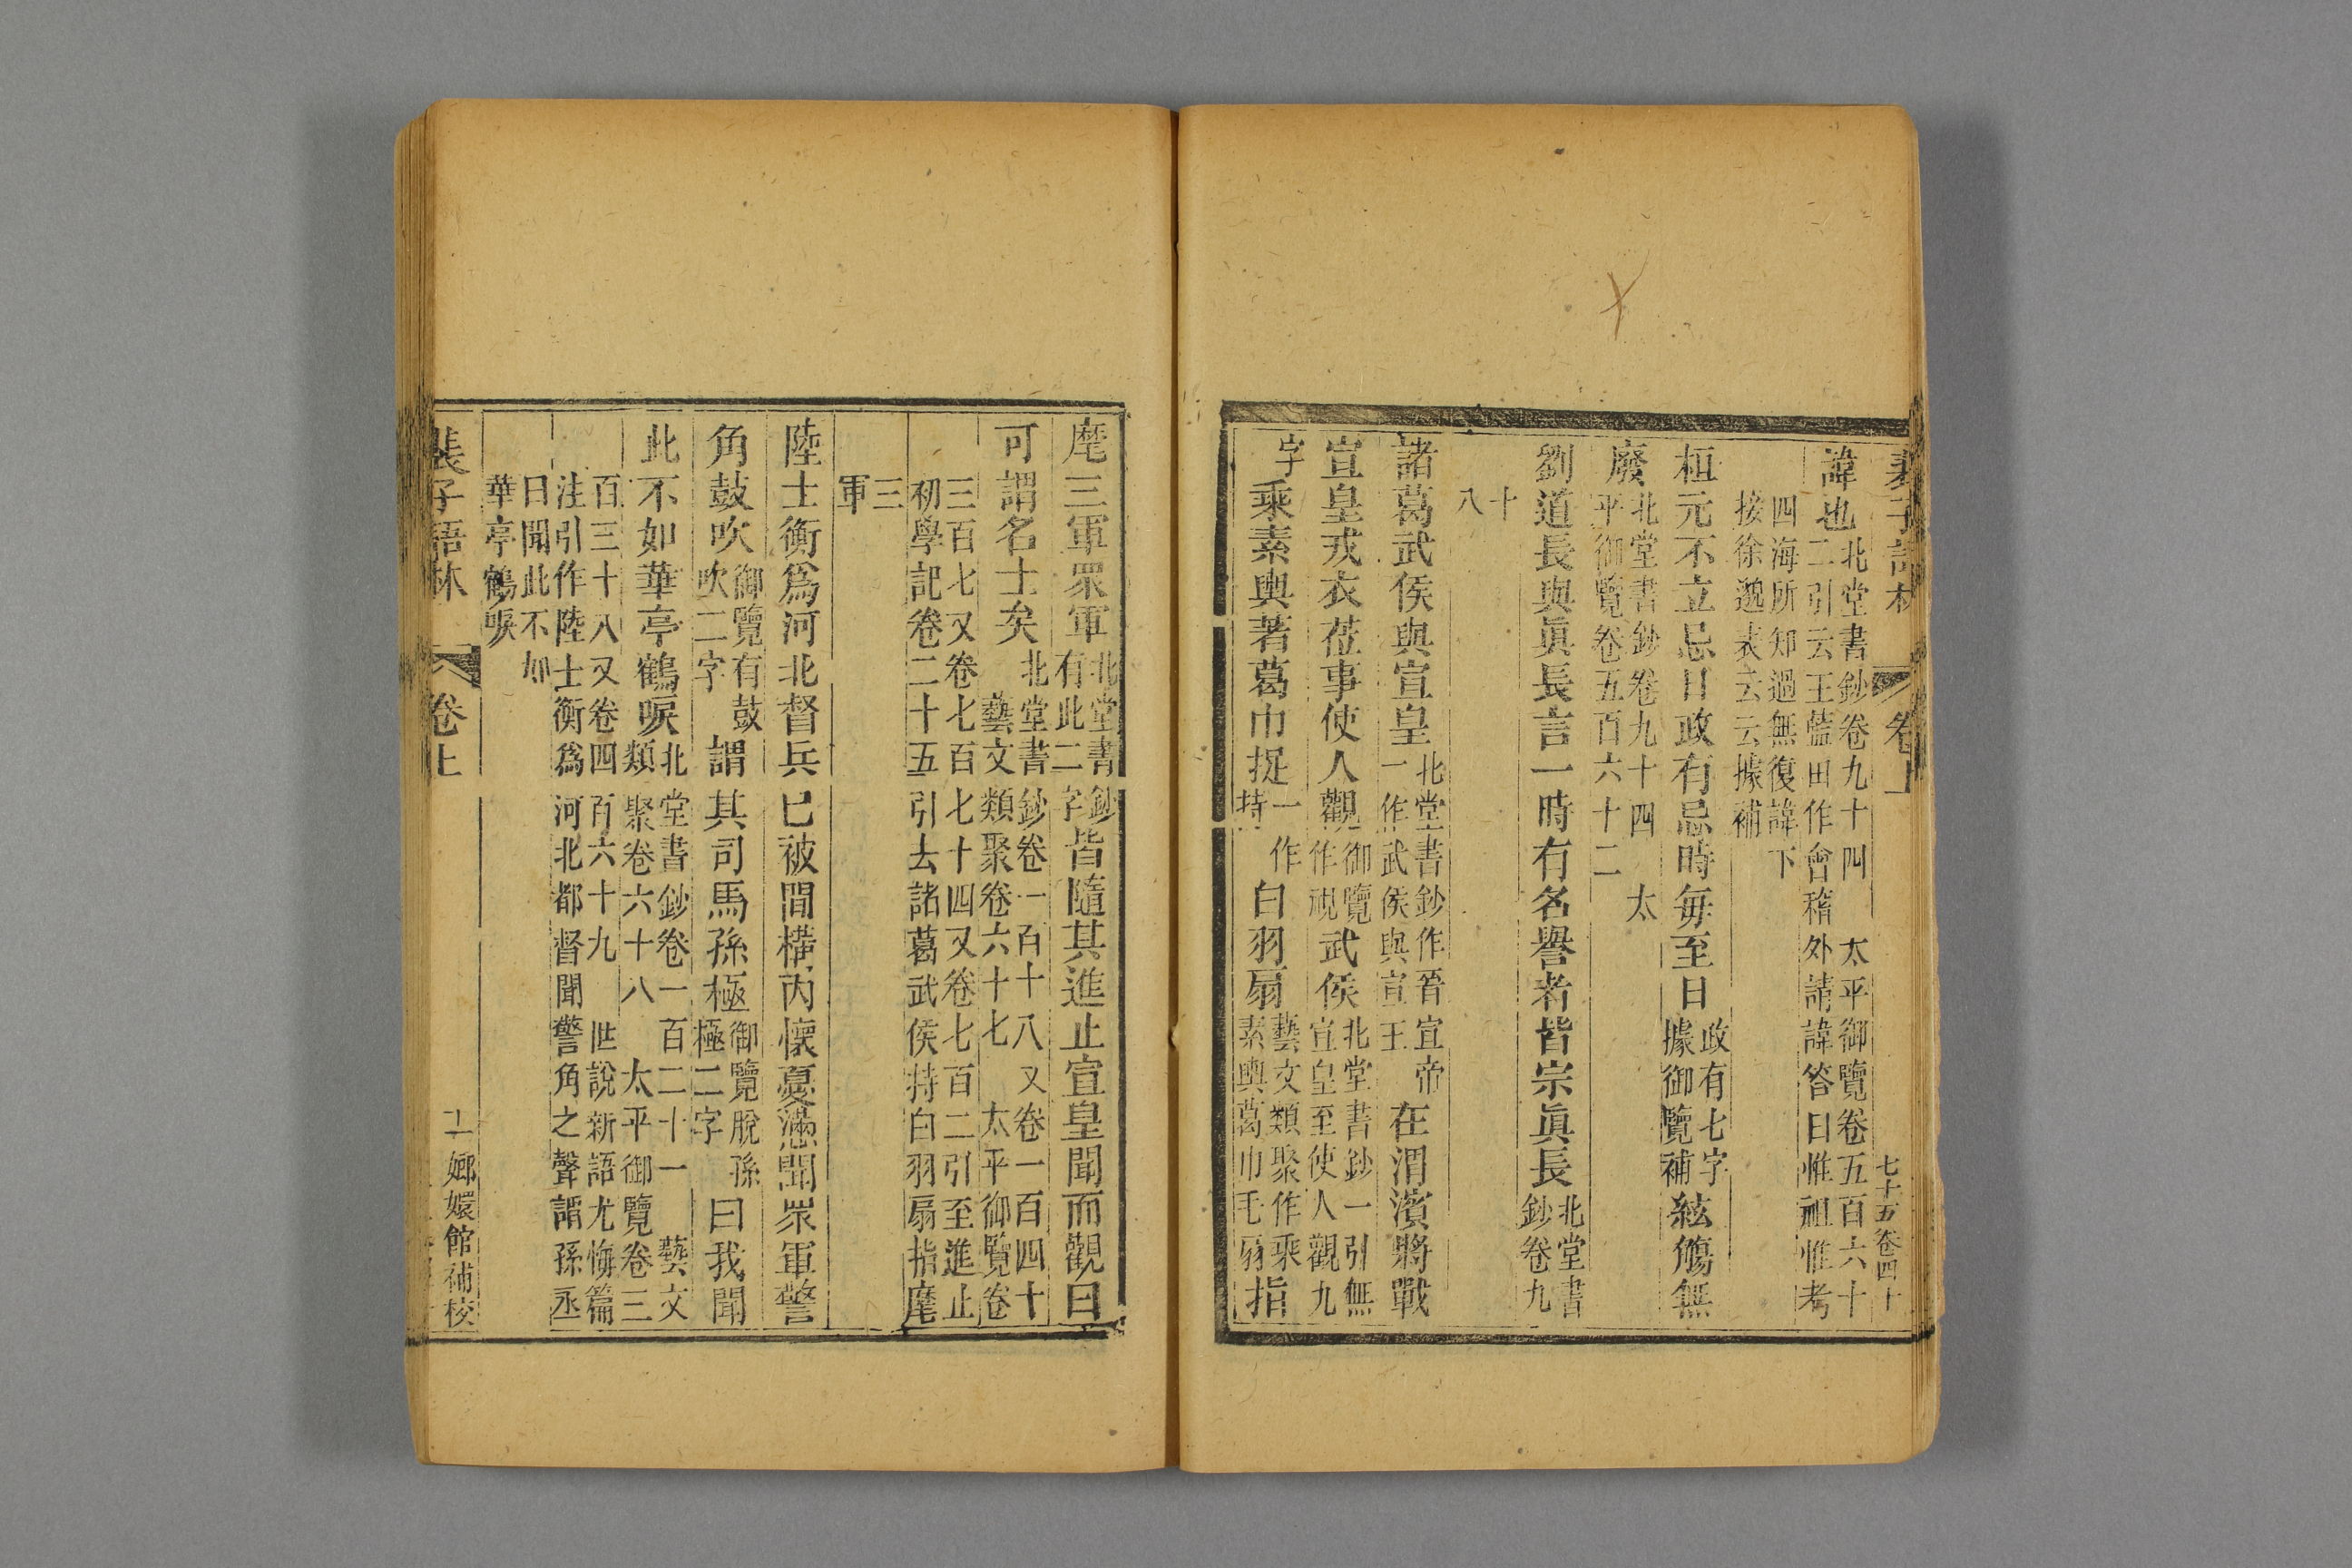 裴子語林 卷上 七十五 卷四十
諱也 北堂書鈔卷九十四 太平御覽卷五百六十
二引云王藍田作會稽外請諱答曰惟祖惟考
四海所知過無復諱下
接徐邈表云云據補
桓元不立忌日政有忌時每至日 政有七字據御覽補 絃觴無
廢 北堂書鈔卷九十四 太
平御覽卷五百六十二
劉道長與眞長言一時有名譽者皆宗眞長 北堂書鈔卷九
十八
諸葛武侯與宣皇 北堂書鈔作晉宣帝一作武侯與宣王 在渭濱將戰
宣皇戎衣莅事使人觀 御覽作視 武侯 北堂書鈔一引無宣皇至使人觀九
字 乘素輿著葛巾捉 一作持 白羽扇 藝文類聚作乘素輿葛巾毛扇 指
麾三軍眾軍 北堂書鈔有此二字 皆隨其進止宣皇聞而觀曰
可謂名士矣 北堂書鈔卷一百十八又卷一百四十
藝文類聚卷六十七 太平御覽卷
三百七又卷七百七十四又卷七百二引至進止
初學記卷二十五引去諸葛武侯持白羽扇指麾
三軍
陸士衡爲河北督兵已被間構內懷憂懣聞眾軍警
角鼓吹 御覽有鼓吹二字 謂其司馬孫極 御覽脫孫極二字 曰我聞
此不如華亭鶴唳 北堂書鈔卷一百二十一 藝文
類聚卷六十八 太平御覽卷三
百三十八又卷四百六十九 世說新語尤悔篇
注引作陸士衡爲河北都督聞警角之聲謂孫丞
曰聞此不如
華亭鶴唳
裴子語林 卷上 十一 嫏嬛館補校